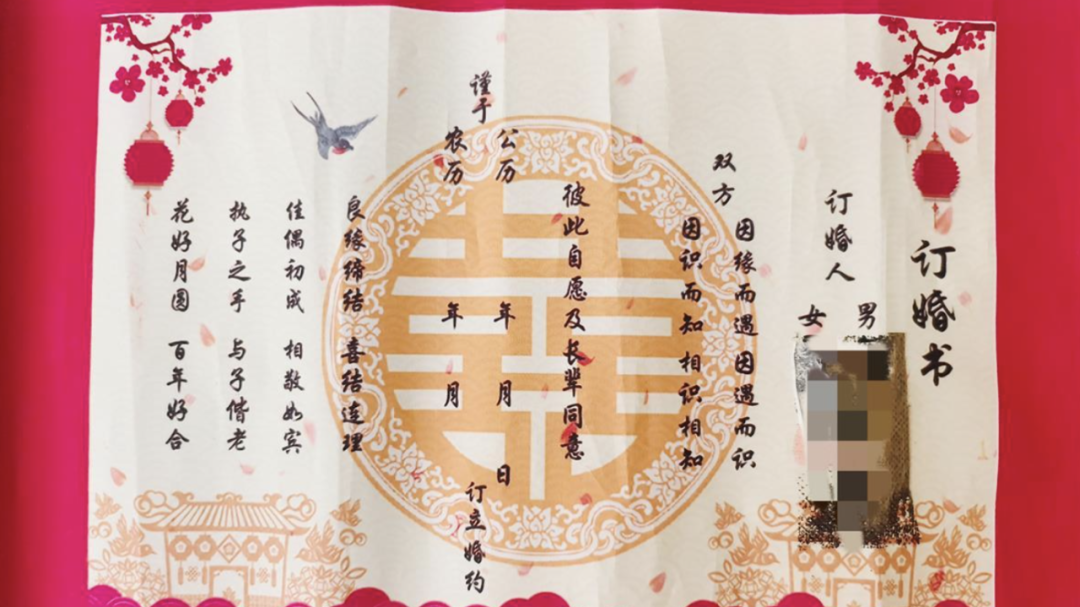 订婚书
订婚人
男
女
双方
因缘而遇 因遇而识
因识而知 相识相知
彼此自愿及长辈同意
谨于
公历 年 月 日
农历 年 月
订立婚约
良缘缔结 喜结连理
佳偶初成 相敬如宾
执子之手 与子偕老
花好月圆 百年好合